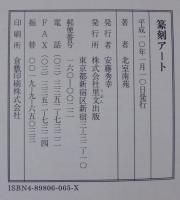 篆刻アート
平成一〇年一月一〇日発行
著者 北室南苑
発行者 安藤秀幸
発行所 株式会社里文出版
東京都新宿区新宿三-三二-一〇
郵便番号 一六〇-〇〇二二
電話 〇三-三三五二-七三二二
FAX 〇三-三三五二-七三二四
振替 〇〇一九〇-九-六五〇三三
印刷所 倉敷印刷株式会社
ISBN4-89806-065-X